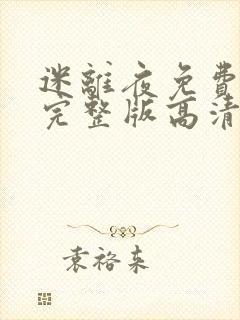 迷離夜免費
完整版高清
袁裕东